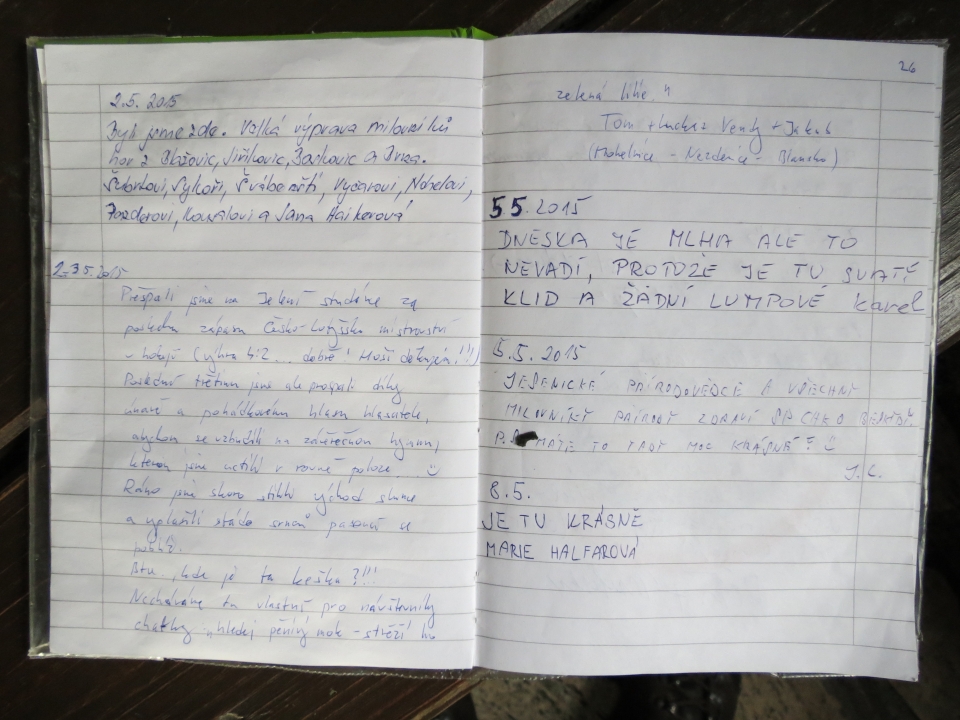 2.5. 2015
Byli jsme zde. Velká výprava milovníků
hor z Blažovic, Jiříkovic, Backovic a Brna.
Sýkoři, Švábenští, Vyčarovi,
Kovalovi a Jana Haikerová
2-3.5.2015
Přespali jsme na Jelení studánce za
poslechu zápasu Česko-Lotyšsko mistrovství
v hokeji (výhra 4:2... dobře! Hoši děkujem!!!)
Poslední třetinu jsme ale prospali díky
únavě a pohádkovému hlasu hlasatele,
abychom se vzbudili na závěrečnou hymnu,
kterou jsme uctili v rovné poloze... ☺
Ráno jsme skoro stihli východ slunce
a vyplašili stádo srnců pasoucí se
poblíž.
Btw., kde je ta keška?!!!
Necháváme tu vlastní pro návštěvníky
chatky „hledej pěnivý mok - střeží ho
26
zelená lilie "
Tom + Vendy + Jakub
(Mohelnice - Nezdenice - Blansko)
5.5. 2015
DNESKA JE MLHA ALE TO
NEVADÍ, PROTOŽE JE TU SVATÝ
KLID A ŽÁDNÍ LUMPOVÉ Karel
5.5. 2015
JESENICKÉ PŘÍRODOVĚDCE A VŠECHNY
MILOVNÍKY PŘÍRODY ZDRAVÍ CHKO BESKYDY.
P.S. MÁTE TO TADY MOC KRÁSNÉ! ☺
J.C.
8.5.
JE TU KRÁSNĚ
MARIE HALFAROVÁ